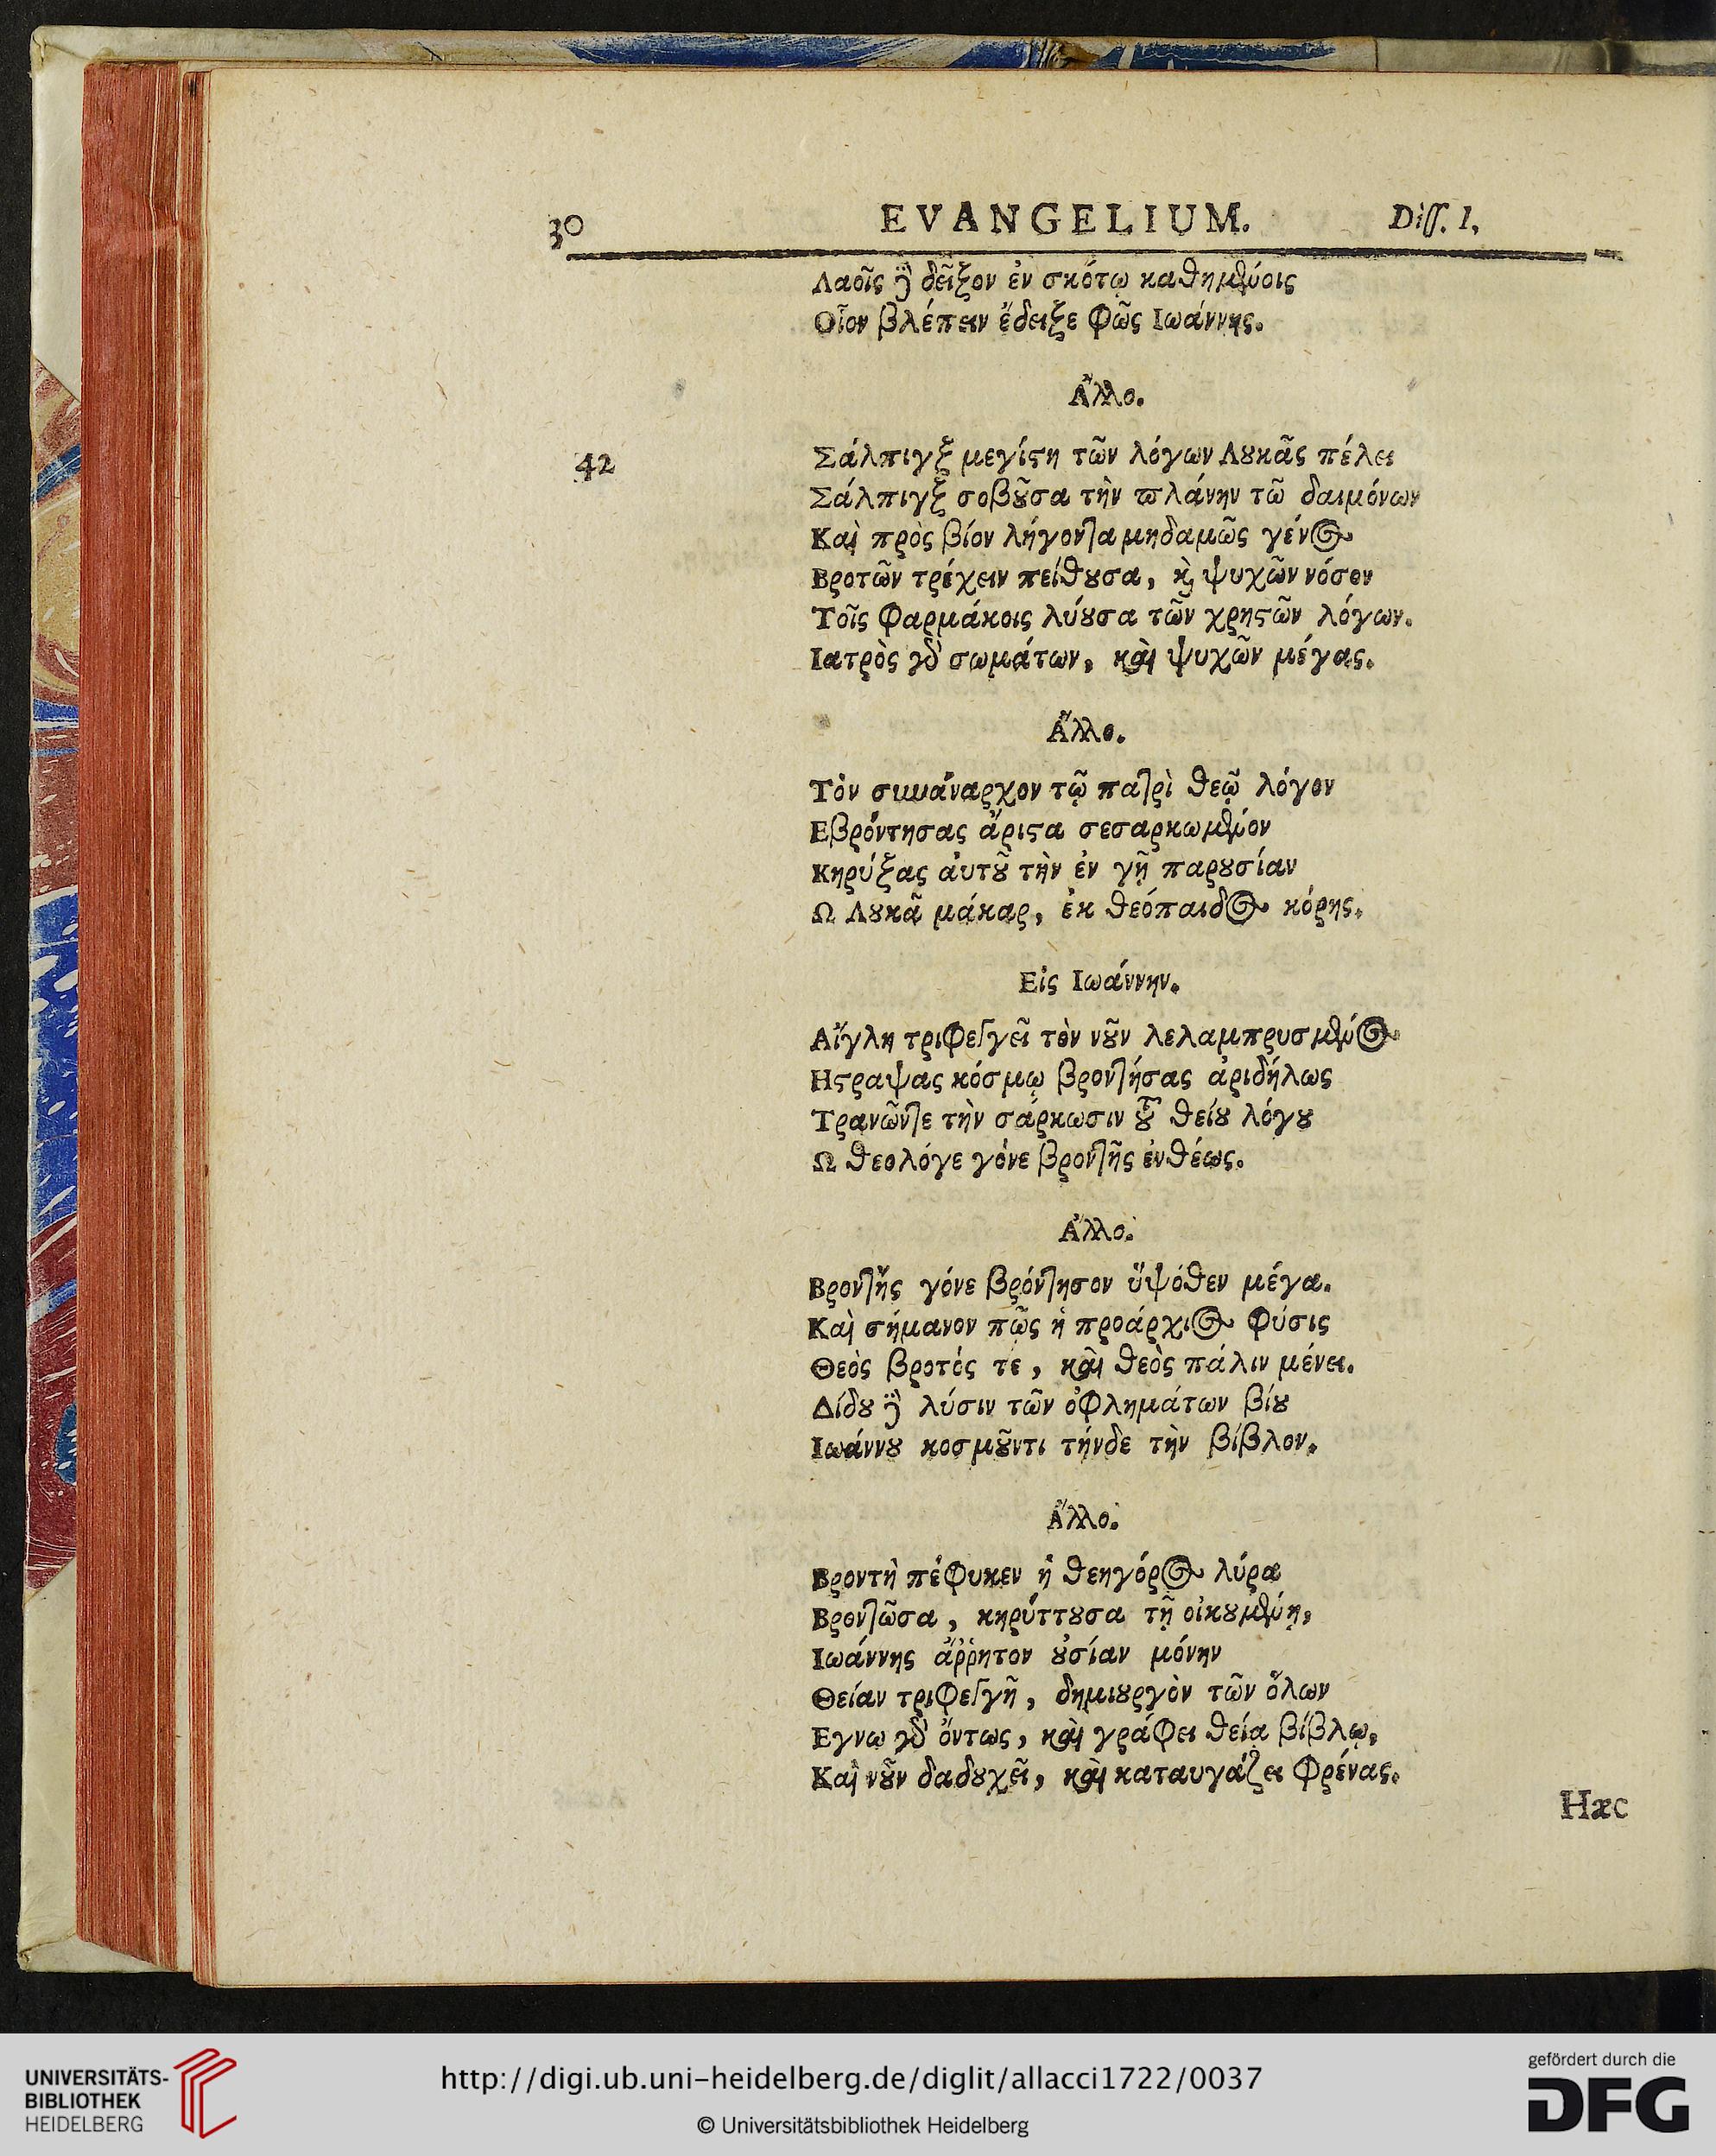 30 EVANGELIUM. Diss. 1.
Λαοῖς ȣ̓͂ δεῖξον ἐν σκότῳ καθημένοις
Οἷον βλέπειν ἔδειξε φῶς Ιωάννης.
Ἄλλο.
42
Σάλπιγξ μεγίϛη τῶν λόγων Λȣκᾶς πέλει
Σάλπιγξ σοβȣ͂σα τὴν ϖλάνην τῶ δαιμόνων
Καὶ πρὸς βίον λήγοντα μηδαμῶς γένος
Βροτῶν τρέχειν πείθȣσα, ϗ̀ ψυχῶν νόσον
Τοῖς φαρμάκοις λύȣσα τῶν χρηϛῶν λόγων.
Ιατρὸς γδ̀ σωμάτων, καὶ ψυχῶν μέγας.
Ἄλλο.
Τὸν συνάναρχον τῷ πατρὶ θεῷ λόγον
Εβρόντησας ἄριϛα σεσαρκωμένον
Κηρύξας ἀυτȣ͂ τὴν ἐν γῇ παρȣσίαν
Ω Λȣκᾶ μάκαρ, ἐκ θεόπαιδος κόρης.
Εἰς Ιωάννην.
Αἴγλη τριφεγγεῖ τὸν νȣ͂ν λελαμπρυσμένος
Ηϛραψας κόσμῳ βροντήσας ἀριδήλως
Τρανῶντε τὴν σάρκωσιν τȣ͂ θείȣ λόγȣ
Ω θεολόγε γόνε βροντῆς ἐνθέως.
Ἄλλο.
Βροντῆς γόνε βρόντησον ὕψόθεν μέγα.
Καὶ σήμανον πῶς ἡ προάρχιος φύσις
Θεὸς βροτός τε, καὶ θεὸς πάλιν μένει.
Δίδȣ λύσιν τῶν ὀφλημάτων βίȣ
Ιωάννȣ κοσμȣ͂ντι τήνδε τὴν βίβλον.
Ἄλλο.
Βροντὴ πέφυκεν ἡ θεηγόρος λύρα
Βροντῶσα, κηρύττȣσα τῇ οἰκȣμένῃ,
Ιωάννης ἄῤῥητον ȣ̓σίαν μόνην
Θείαν τριφεγγῆ, δημιȣργὸν τῶν ὅλων
Εγνω γδ̀ ὄντως, καὶ γράφει θεία βίβλῳ,
Καὶ νȣ͂ν δαδȣχεῖ, καὶ καταυγάζει φρένας.
Hæc
UNIVERSITÄTS-
BIBLIOTHEK
HEIDELBERG
http://digi.ub.uni-heidelberg.de/diglit/allacci1722/0037
© Universitätsbibliothek Heidelberg
gefördert durch die
DFG